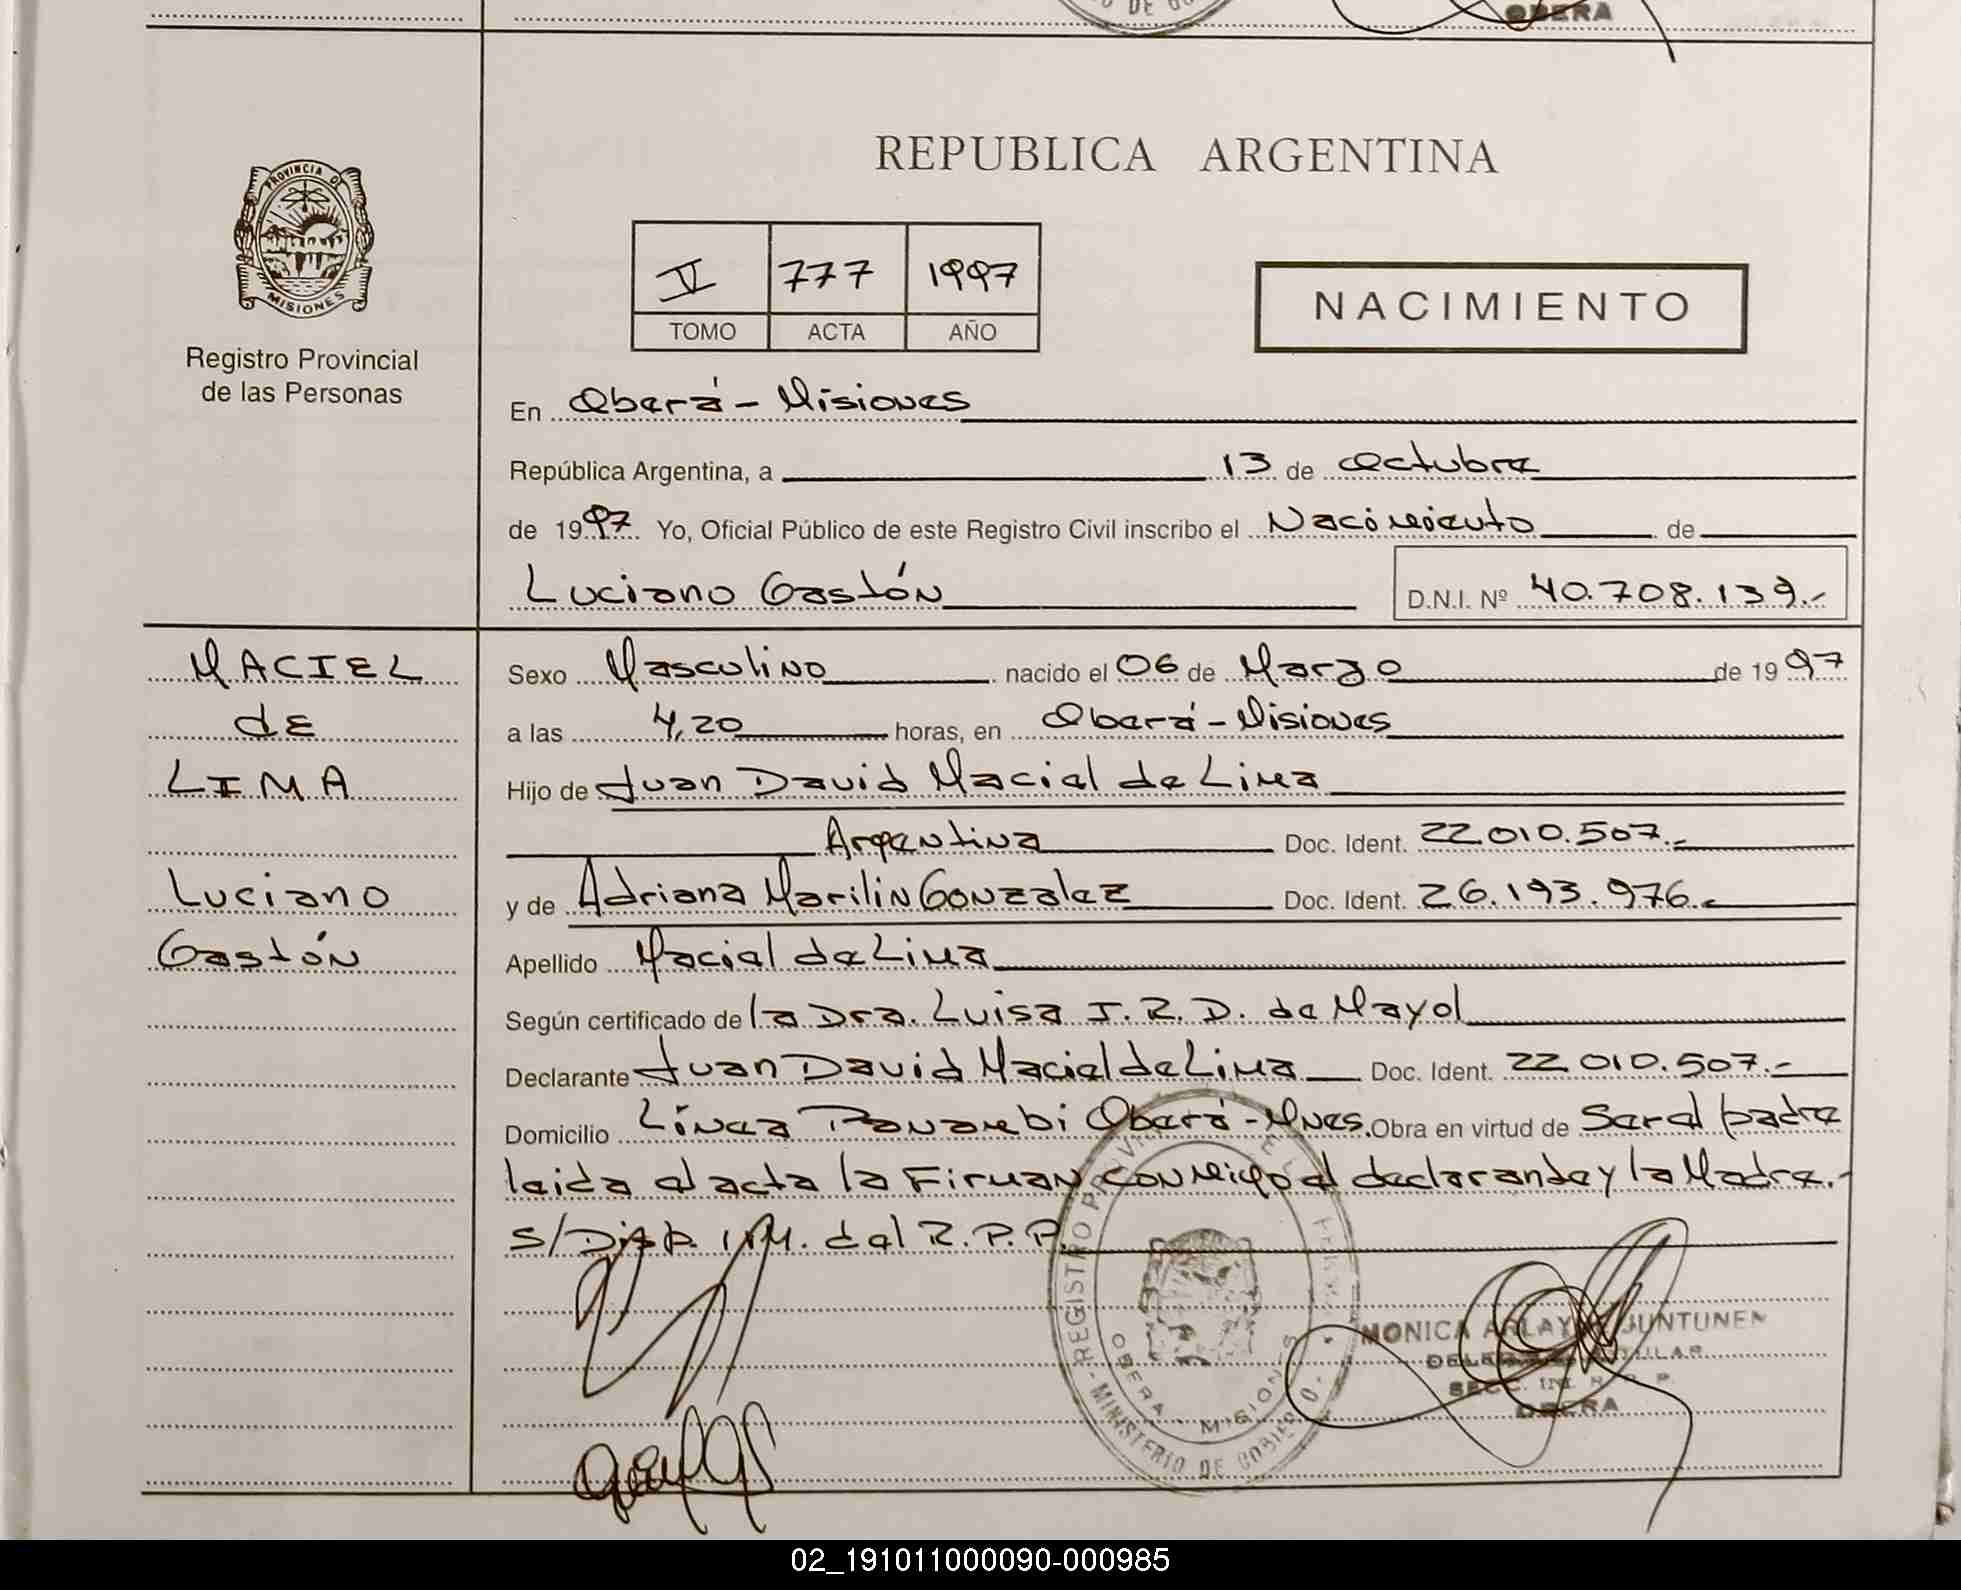 OBERA
PROVINCIA DE
MISIONES
Registro Provincial
de las Personas
REPUBLICA ARGENTINA
V 777 1997
TOMO ACTA AÑO
NACIMIENTO
En Oberá - Misiones
República Argentina, a 13 de Octubre
de 1997 Yo, Oficial Público de este Registro Civil inscribo el Nacimiento de
Luciano Gastón D.N.I. Nº 40.708.139.-
MACIEL
de
LIMA
Luciano
Gastón
Sexo Masculino nacido el 06 de Marzo de 1997
a las 4,20 horas, en Oberá - Misiones
Hijo de Juan David Maciel de Lima
Argentina Doc. Ident. 22.010.507.-
y de Adriana Marilin Gonzalez Doc. Ident. 26.193.976.-
Apellido Maciel de Lima
Según certificado de la Dra. Luisa I. R. D. de Mayol
Declarante Juan David Maciel de Lima Doc. Ident. 22.010.507.-
Domicilio Línea Panambi Oberá - Mnes. Obra en virtud de Ser el padre
leida el acta la Firman conmigo el declarante y la Madre.-
S/Disp. 1/M. del R. P. P.
REGISTRO PROVINCIAL DE LAS PERSONAS
- MINISTERIO DE GOBIERNO -
OBERA MISIONES
MONICA ARLAYNE JUNTUNEN
DELEGADA TITULAR
SECC. R. P. P.
OBERA
02_191011000090-000985